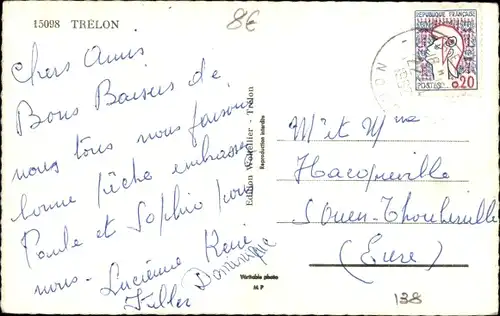 15098 TRÉLON
8€
Chers Amis
Bons Baisers de
nous tous nous faisons
bonne pêche embrasse
Paule et Sophie pour
nous. Lucienne René
Dominique
Edition Wollellier - Trélon
Reproduction interdite
Véritable photo
M P
REPUBLIQUE FRANÇAISE
POSTES 0,20
Mr et Mme
Hacqueville
(Eure)
138